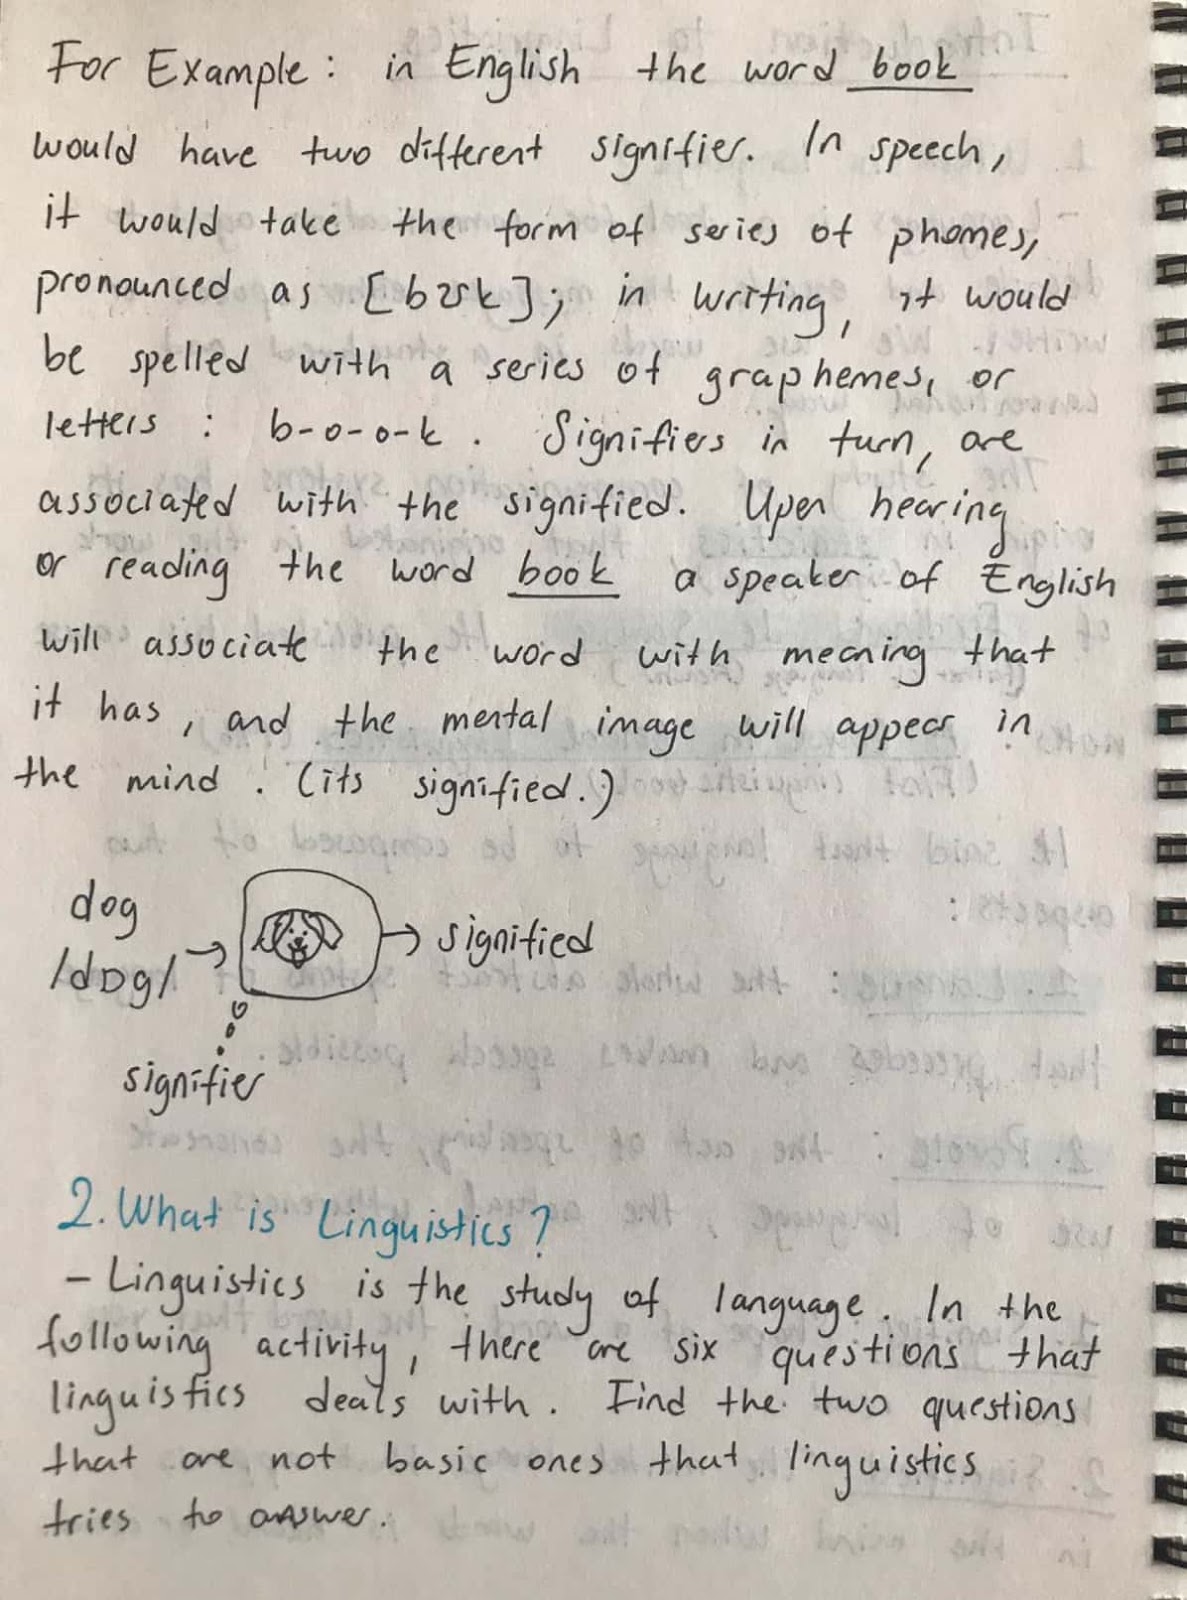 For Example: in English the word book
would have two different signifier. In speech,
it would take the form of series of phomes,
pronounced as [bʊk]; in writing, it would
be spelled with a series of graphemes, or
letters : b-o-o-k. Signifiers in turn, are
associated with the signified. Upen hearing
or reading the word book a speaker of English
will associate the word with meaning that
it has, and the mental image will appear in
the mind. (its signified.)
dog
/dɒg/ → → signified
signifier
2. What is Linguistics?
- Linguistics is the study of language. In the
following activity, there are six questions that
linguistics deals with. Find the two questions
that are not basic ones that linguistics
tries to answer.